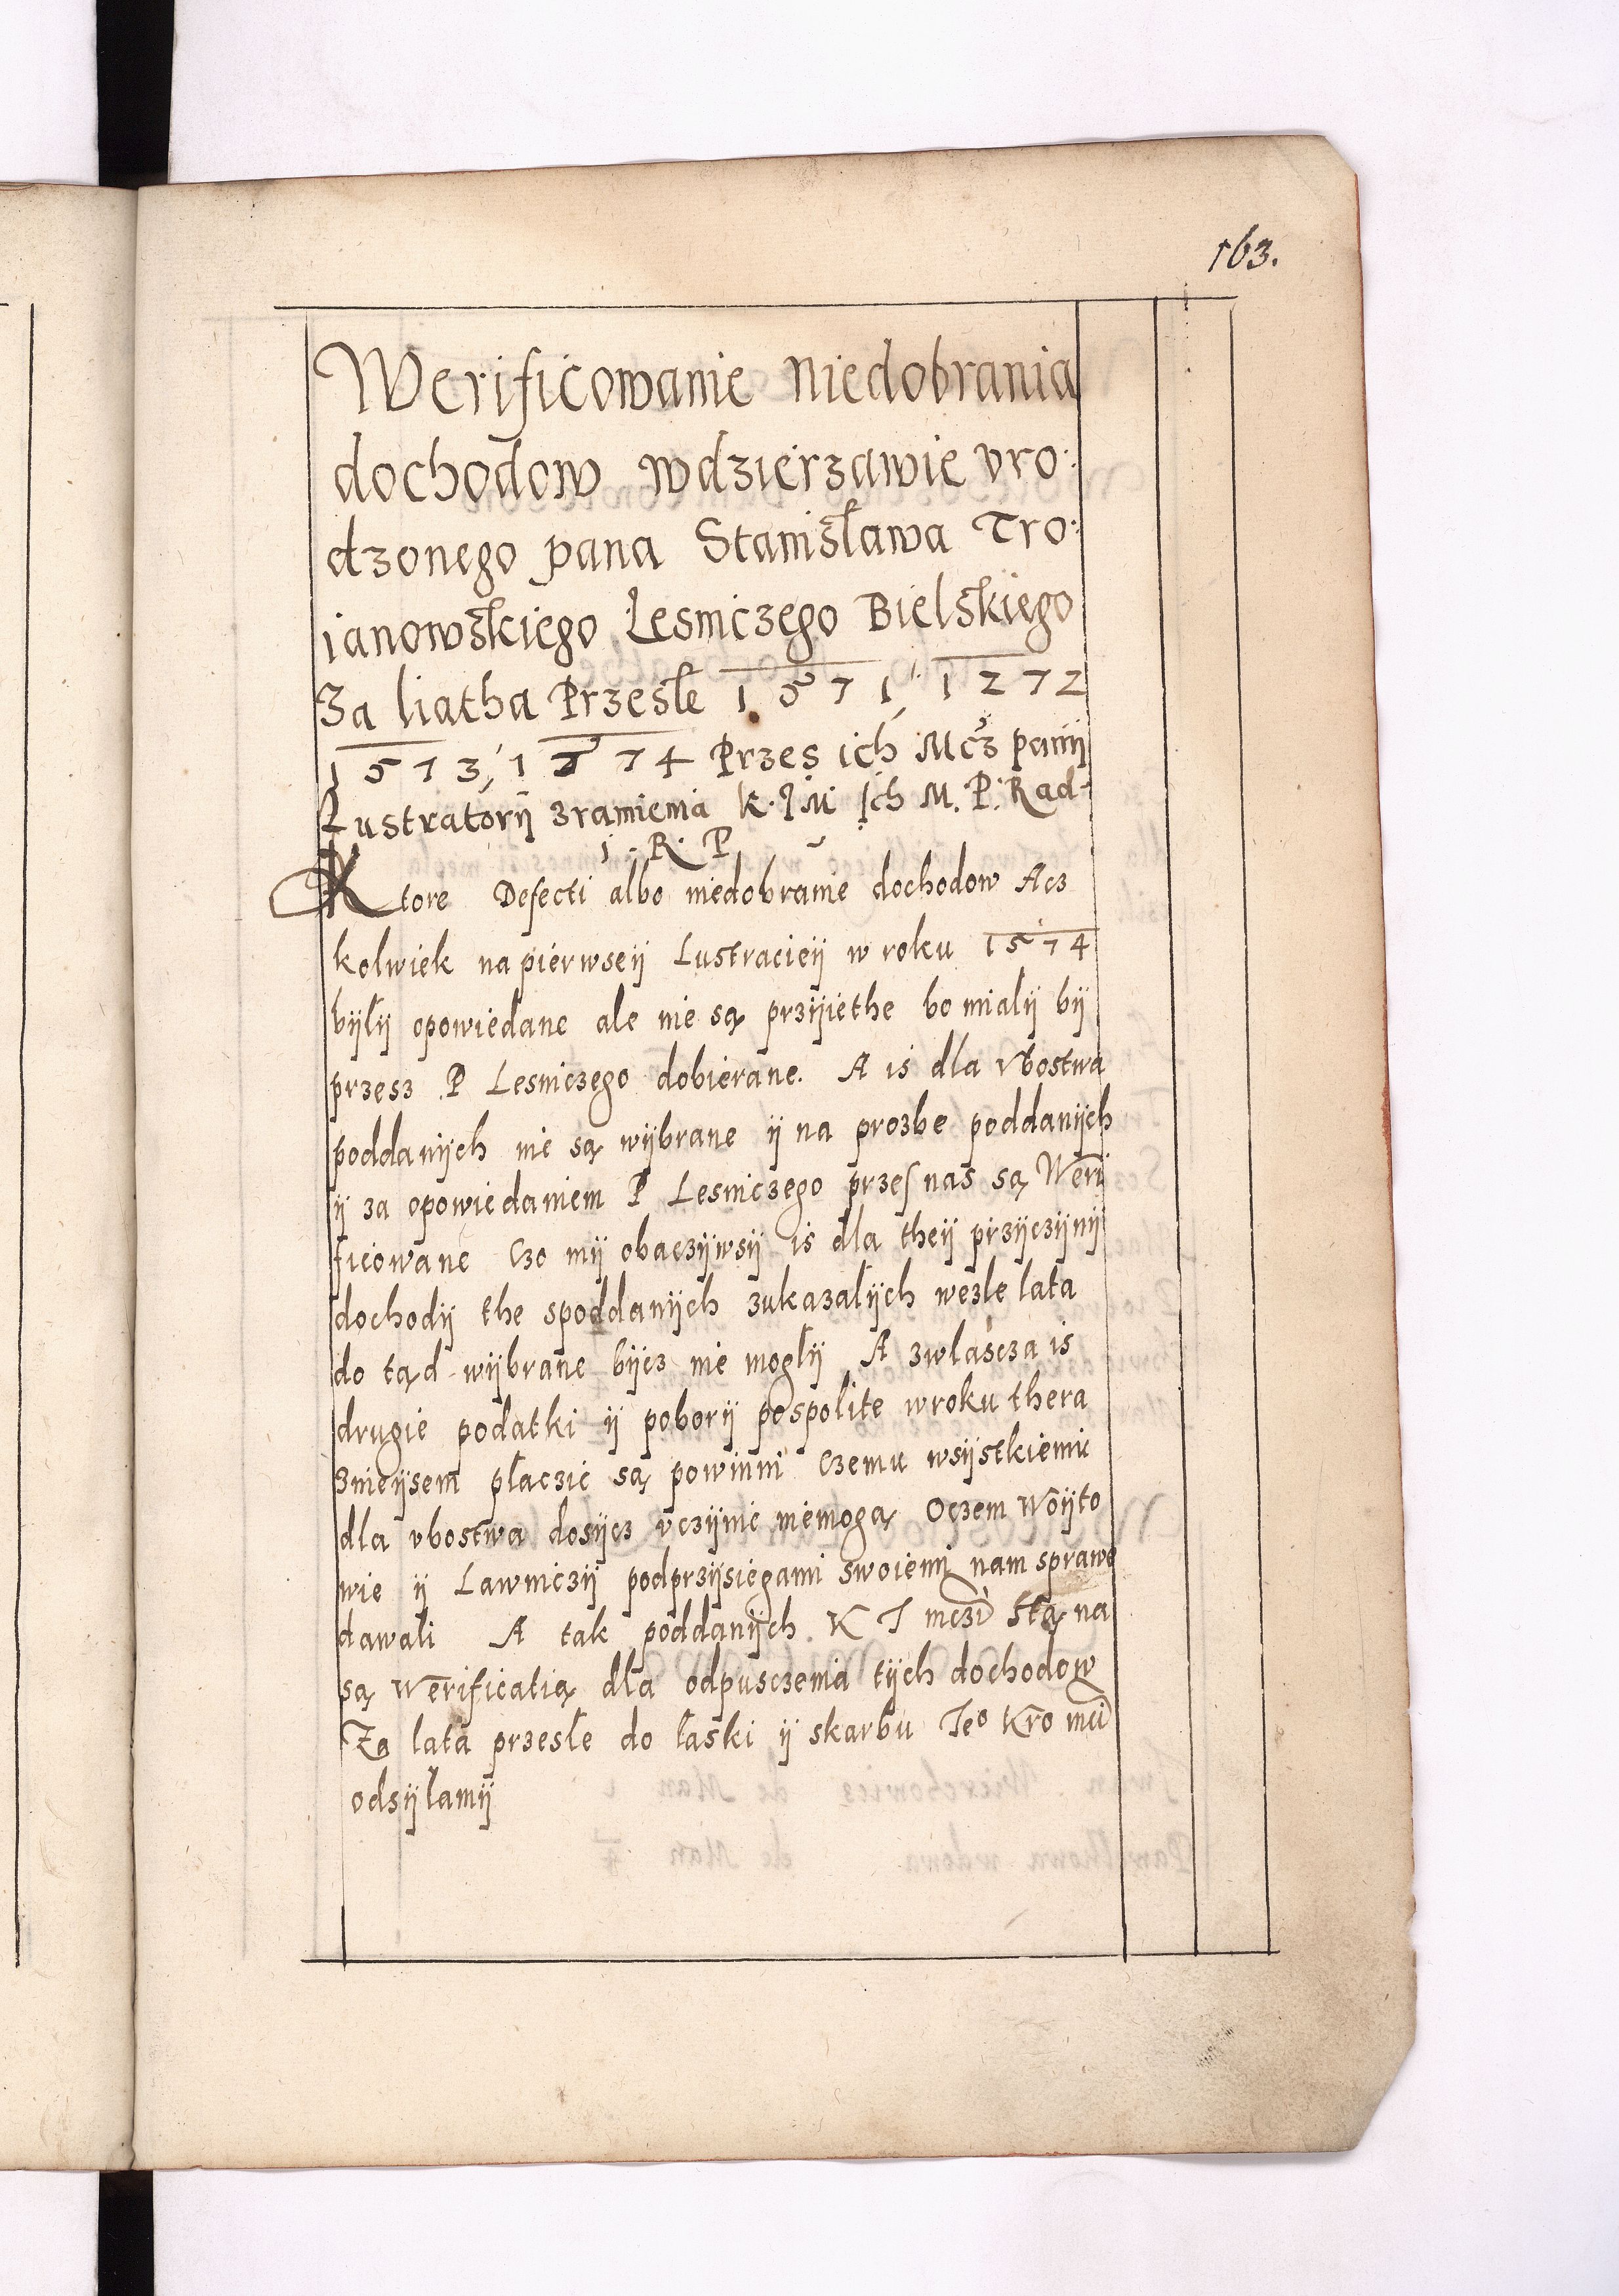 163.
Werificowanie Niedobrania
dochodow wdzierzawie vro:
dzonego pana Stanisława Tro:
ianowskiego Łesniczego Bielskiego
Za liatha Przesłe 1571, 1272
1573, 1574 Przes ich Mcz panij
Lustratorij zramienia K. J M Jch M. P. Rad
i. R. P
Ktore Defecti albo niedobranie dochodow Acz
kolwiek na pierwseij Lustracieij w roku 1574
bijłij opowiedane ale nie są przijiethe bo mialij bij
przesz P Lesniczego dobierane. A is dla vbostwa
poddanijch nie są wijbrane ij na prozbe poddanijch
ij za opowiedaniem P Lesniczego przes nas są Weri
ficowane Czo mij obaczijwsij is dla theij prziczijnij
dochodij the spoddanijch zukazalijch wezle lata
do tąd wijbrane bijcz nie mogłij A zwlascza is
drugie podatki ij poborij pospolite w roku thera
znieijsem płaczic są powinni Czemu wsijstkiemu
dla vbostwa dosijcz vczijnic niemogą Oczem Woijto
wie ij Ławniczij podprzijsiegami swoiemi nam sprawe
dawali A tak poddanijch K J mczi stą na
są Werificatią dla odpusczenia tijch dochodow
Za lata przesłe do łaski ij skarbu Jeo Kro mci
odsijłamij